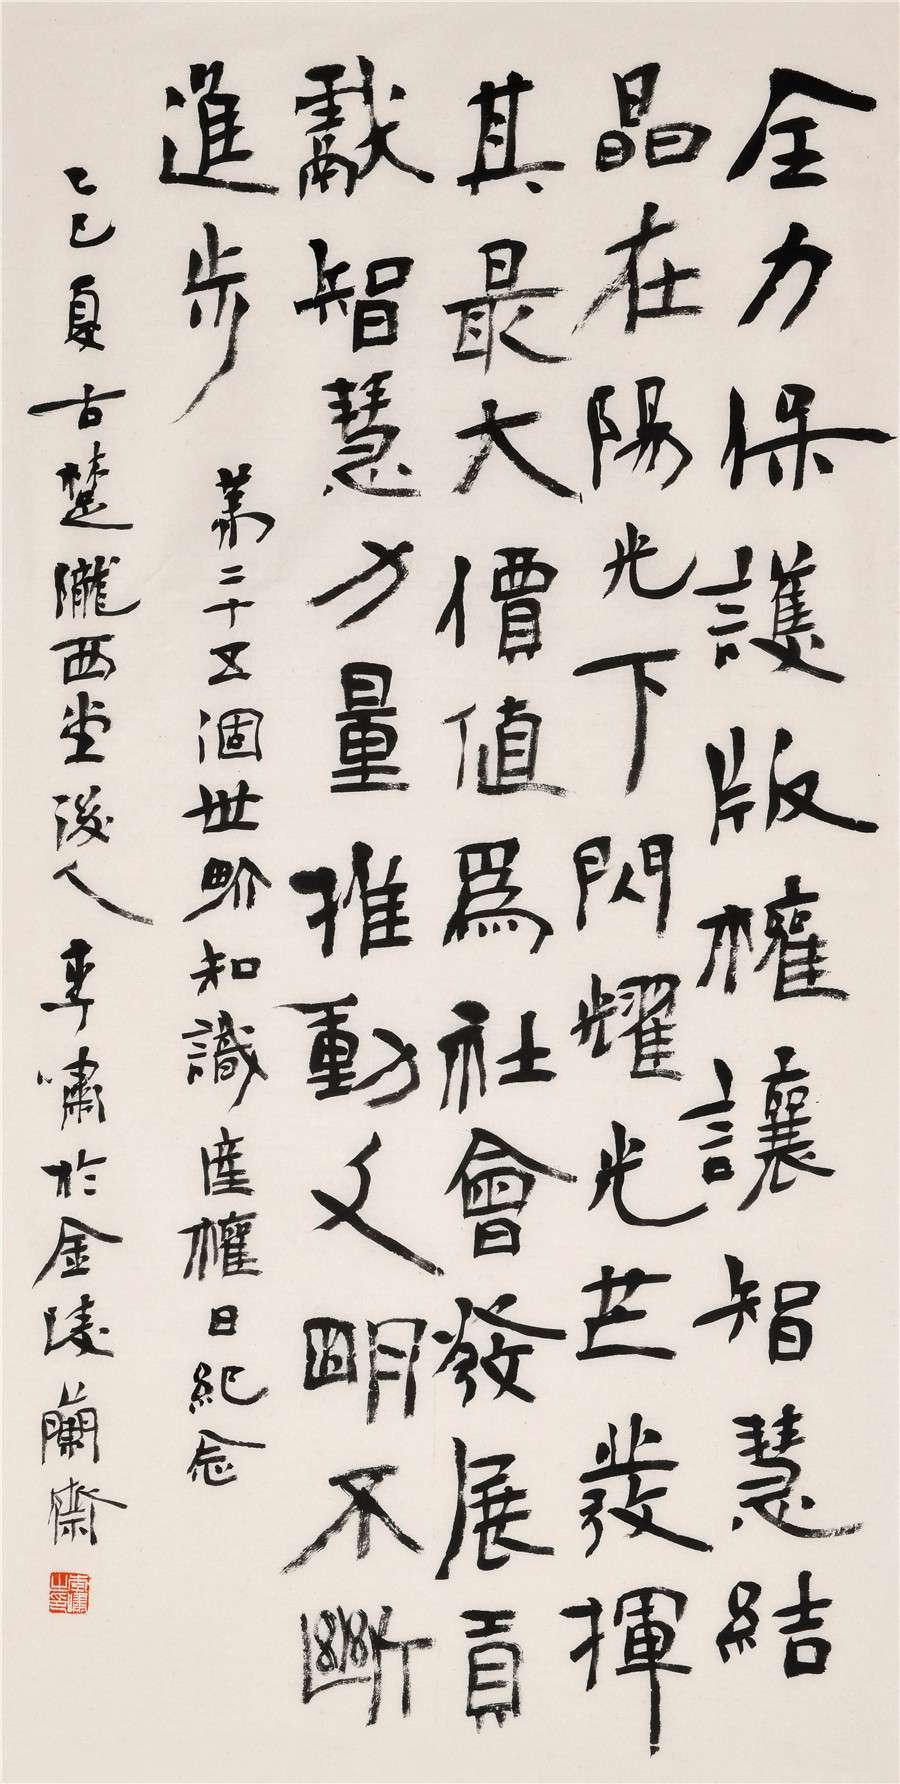 全力保護版權讓智慧結
晶在陽光下閃耀光芒發揮
其最大價值為社會發展貢
獻智慧力量推動文明不斷
進步
第二十五個世界知識產權日紀念
乙巳夏古楚隴西堂後人李嘯於金陵蘭齋